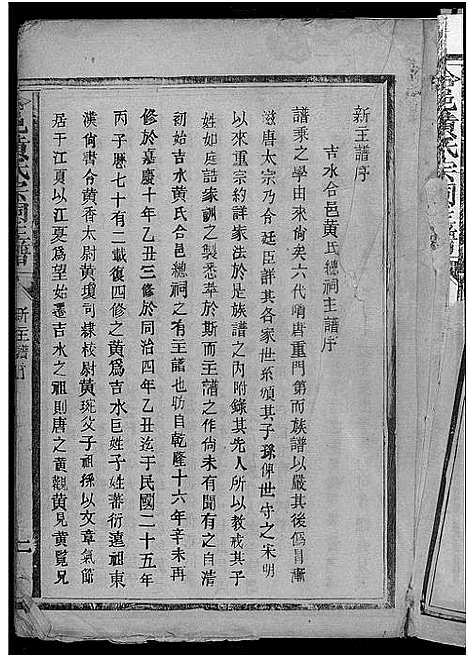 新主譜序
吉水合邑黄氏總祠主譜序
譜乘之學由來尙矣六代隋唐重門第而族譜以嚴其後僞冒漸
滋唐太宗乃合廷臣詳其各家世系頒其子孫俾世守之宋明
以來重宗約詳家法於是族譜之内附錄其先人所以教戒其子
姓如庭誥家訓之製悉萃於斯而主譜之作尙未有聞有之自淸
初始吉水黄氏合邑總祠之有主譜也昉自乾隆十六年辛未再
修於嘉慶十年乙丑三修於同治四年乙丑迄于民國二十五年
丙子厯七十有二載復四修之黄爲吉水巨姓子姓蕃衍遠祖東
漢尙書令黄香太尉黄瓊司隷校尉黄琬父子祖孫以文章氣節
居于江夏以江夏爲望始遷吉水之祖則唐之黄觀黄見黄覽兄
合邑黄氏宗祠主譜
新主譜序
一
合邑黄氏宗祠主譜